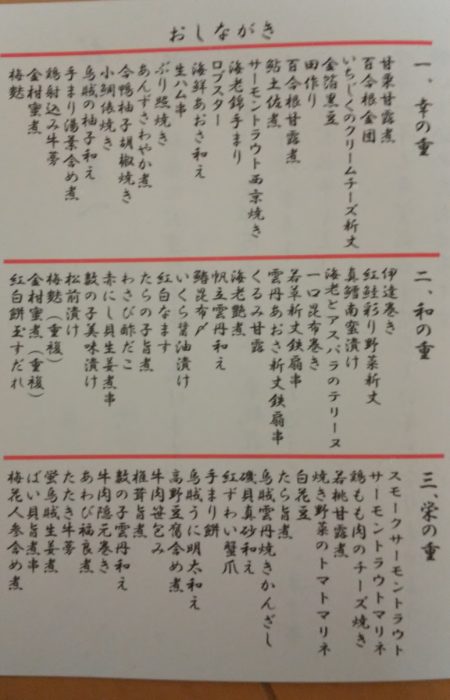 おしながき
一、幸の重
甘栗甘露煮
百合根金団
いちじくのクリームチーズ祈丈
金箔黒豆
田作り
百合根甘露煮
鮎土佐煮
サーモントラウト西京焼き
海老錦手まり
ロブスター
海鮮あおさ和え
生ハム串
ぶり照焼き
あんずさわやか煮
合鴨柚子胡椒焼き
小鯛俵焼き
烏賊の柚子和え
手まり湯葉含め煮
鶏射込み牛蒡
金柑蜜煮
梅麩
二、和の重
伊達巻き
紅鮭彩り野菜祈丈
真鱈南蛮漬け
海老とアスパラのテリーヌ
一口昆布巻き
若草祈丈鉄扇串
雲丹あおさ祈丈鉄扇串
くるみ甘露
海老艶煮
帆立雲丹和え
鰆昆布〆
いくら醤油漬け
紅白なます
たらの子旨煮
わさび酢だこ
赤にし貝生姜煮串
数の子美味漬け
松前漬け
梅麩（重複）
金柑蜜煮（重複）
紅白餅玉すだれ
三、栄の重
スモークサーモントラウト
サーモントラウトマリネ
鶏もも肉のチーズ焼き
若桃甘露煮
焼き野菜のトマトマリネ
白花豆
たら旨煮
烏賊雲丹焼きかんざし
磯貝真砂和え
紅ずわい蟹爪
手まり餅
烏賊うに明太和え
高野豆腐含め煮
牛肉笹包み
椎茸旨煮
数の子雲丹和え
牛肉隠元巻き
あわび福良煮
たたき牛蒡
蛍烏賊生姜煮
ばい貝旨煮串
梅花人参含め煮